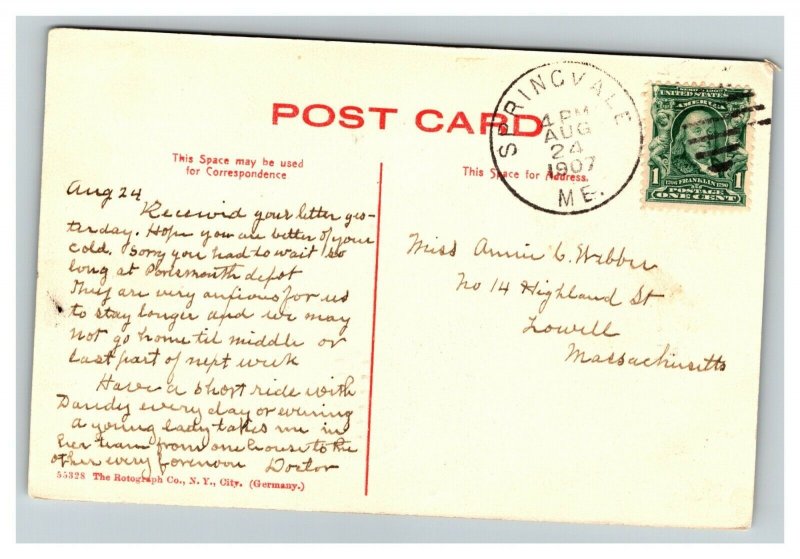 POST CARD
This Space may be used
for Correspondence
This Space for Address.
SPRINGVALE
4 PM
AUG
24
1907
ME.
UNITED STATES
AMERICA
1706 FRANKLIN 1790
1 POSTAGE 1
ONE CENT
Aug 24
Received your letter yes-
terday. Hope you are better of your
cold. Sorry you had to wait so
long at Portsmouth depot
They are very anxious for us
to stay longer and we may
not go home til middle or
last part of next week
Have a short ride with
Dandy every day or evening
a young lady takes me in
her team from one house to the
other every forenoon Doctor
Miss Annie C. Webber
No 14 Highland St
Lowell
Massachusetts
55328 The Rotograph Co., N. Y., City. (Germany.)